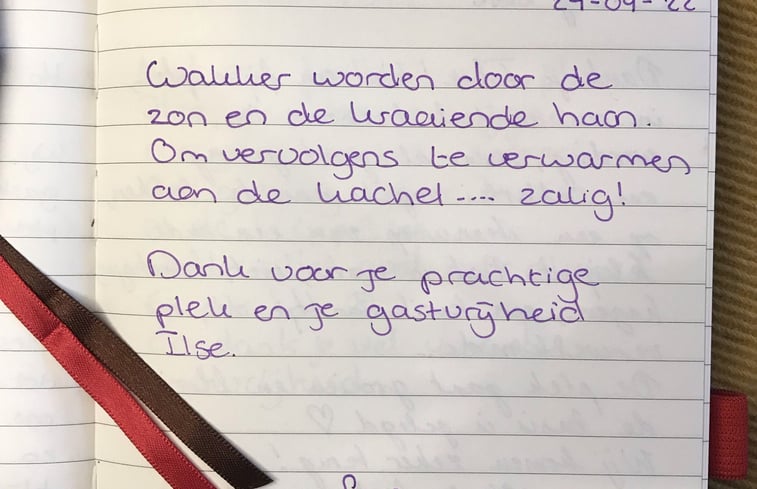 24-04-22
Wakker worden door de
zon en de kraaiende haan.
Om vervolgens te verwarmen
aan de kachel.... zalig!
Dank voor je prachtige
plek en je gastvrijheid
Ilse.